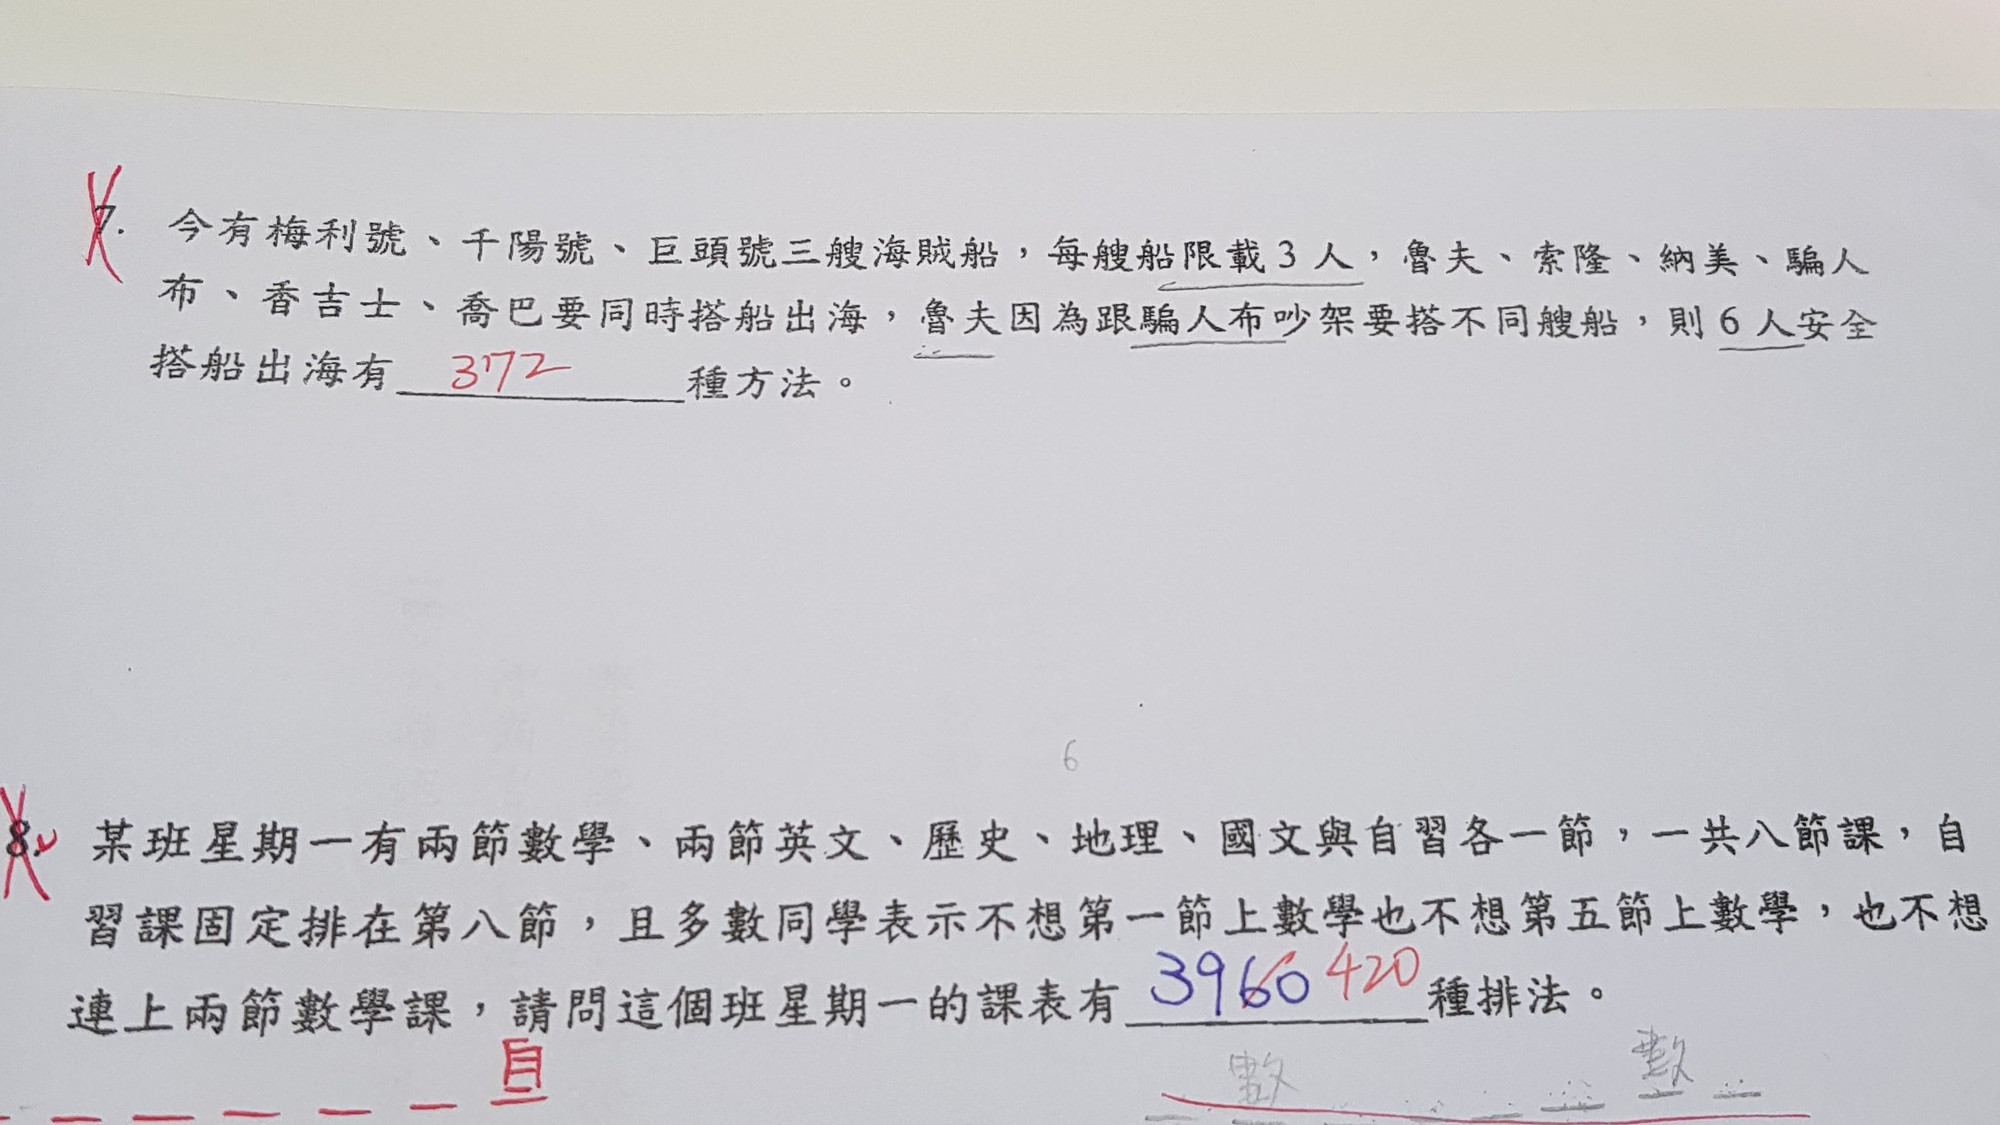 7. 今有梅利號、千陽號、巨頭號三艘海賊船，每艘船限載3人，魯夫、索隆、納美、騙人
布、香吉士、喬巴要同時搭船出海，魯夫因為跟騙人布吵架要搭不同艘船，則6人安全
搭船出海有 372 種方法。
6
8. 某班星期一有兩節數學、兩節英文、歷史、地理、國文與自習各一節，一共八節課，自
習課固定排在第八節，且多數同學表示不想第一節上數學也不想第五節上數學，也不想
連上兩節數學課，請問這個班星期一的課表有 3960 420 種排法。
自
數 數